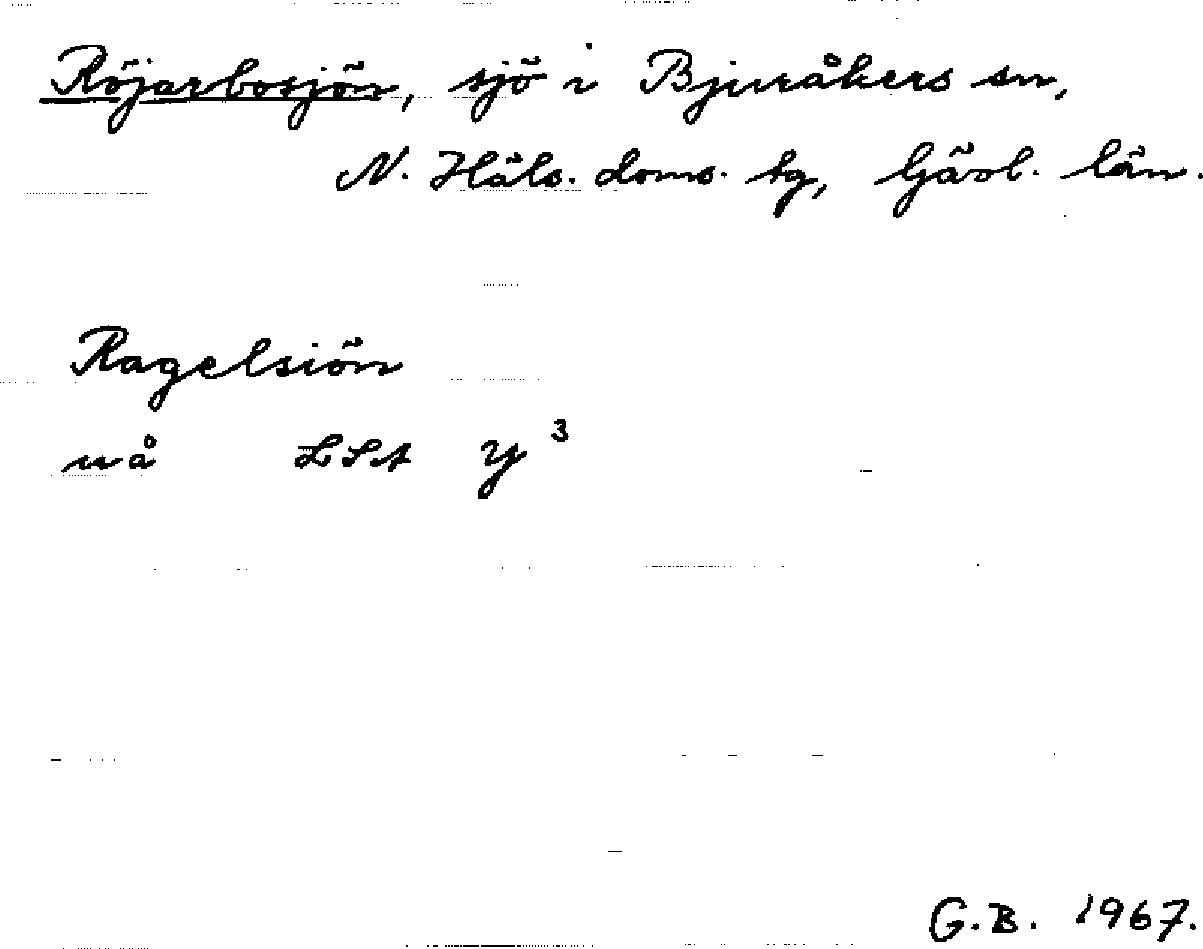 Röjarbosjön, sjö i Bjuråkers sn,
N. Häls. doms. tg, Gävl. län.
Ragelsiön
uå LSA Y³
G.B. 1967.